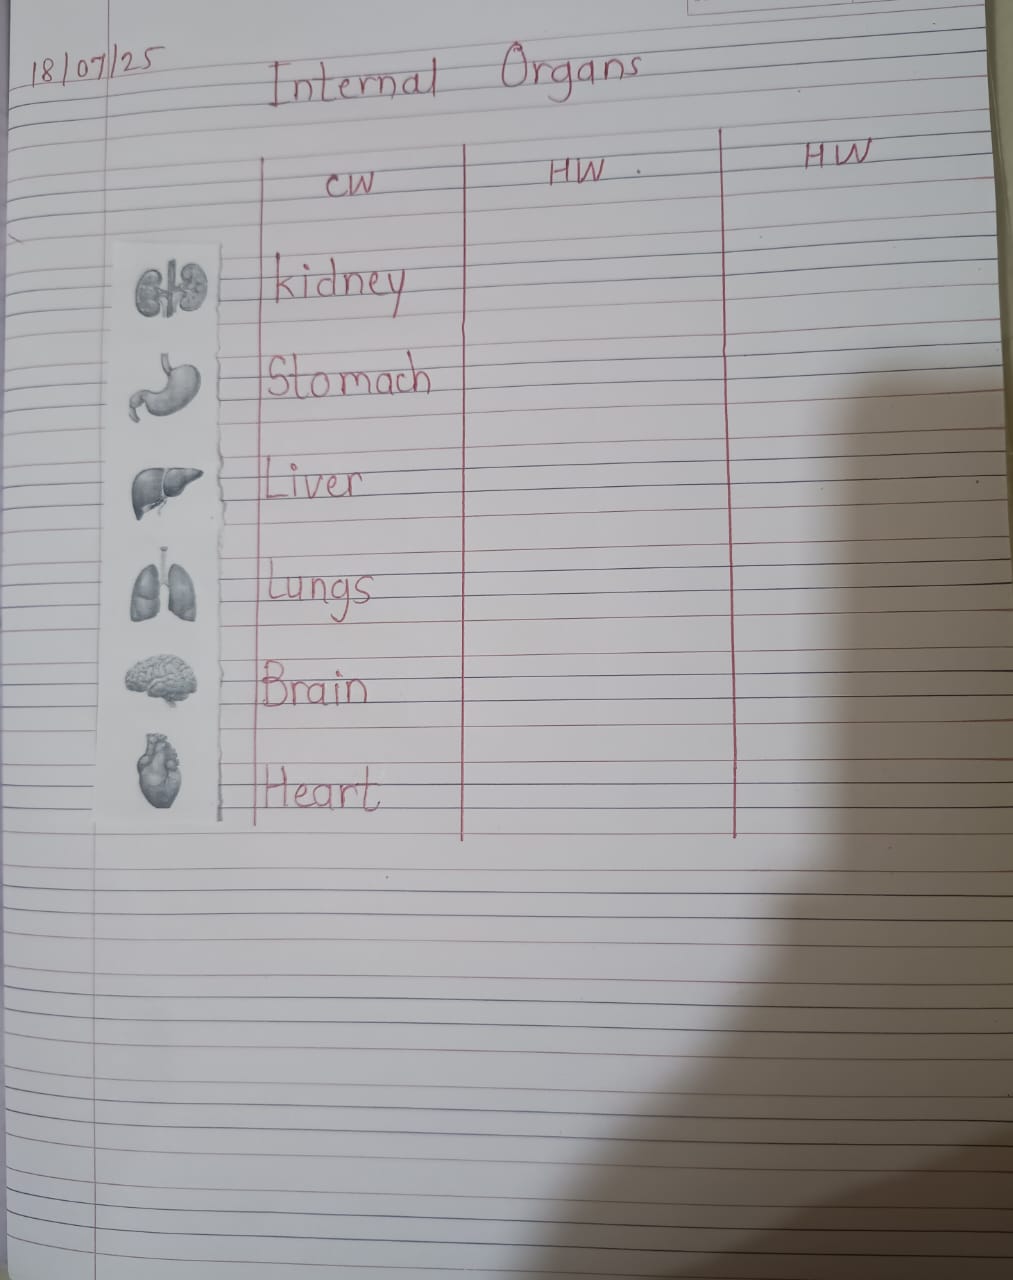 18/07/25
Internal Organs
CW HW . HW
kidney
Stomach
Liver
Lungs
Brain
Heart